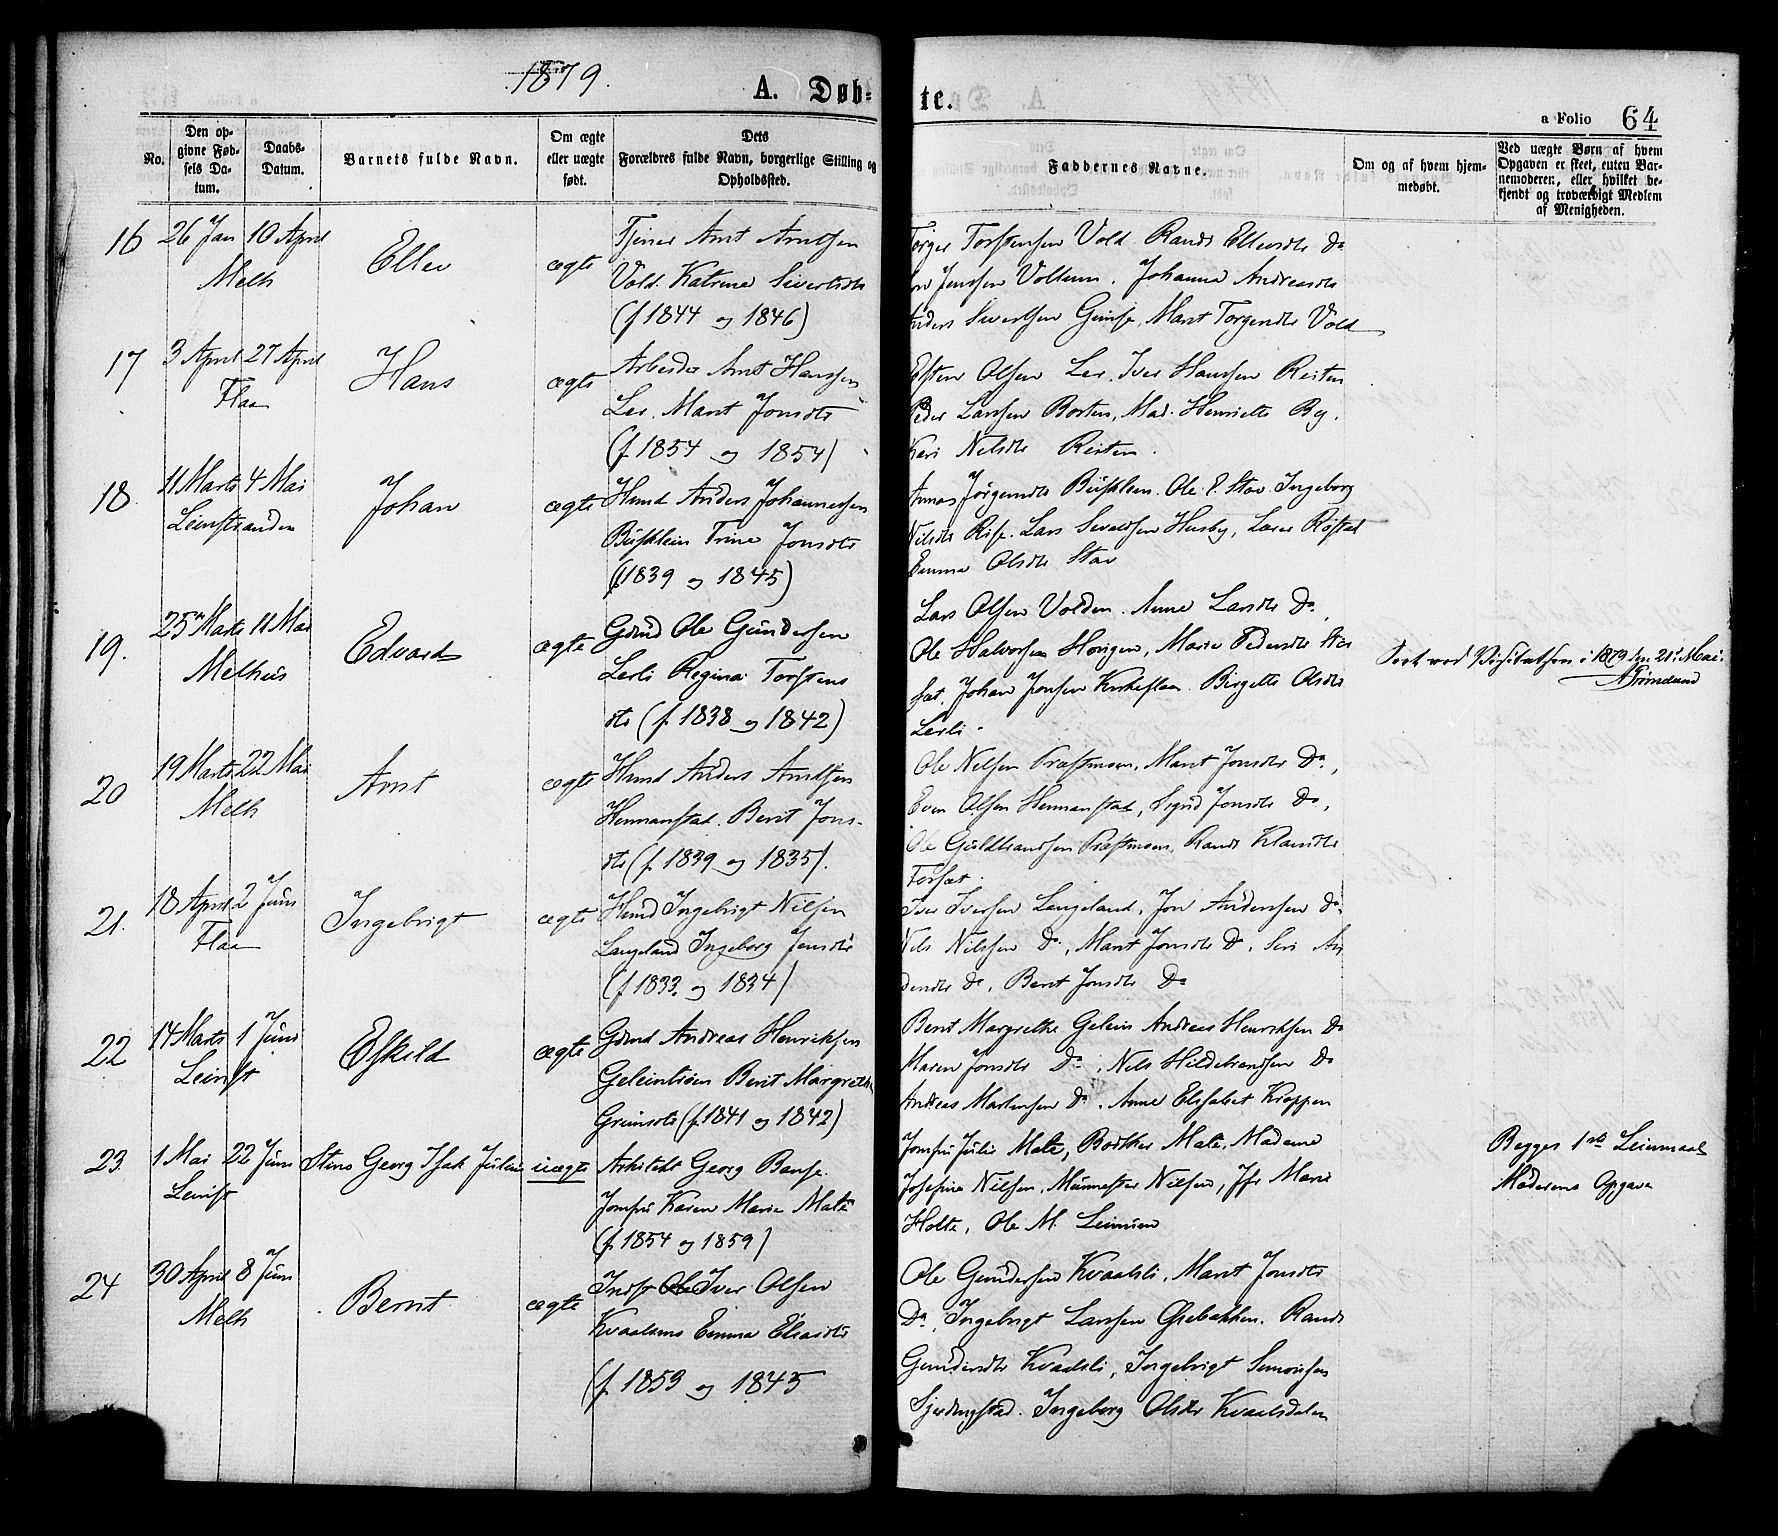 1879.
A. Døb=
te.
a Folio 64
No.
Den op-
givne Fød-
sels Da-
tum.
Daabs-
Datum.
Barnets fulde Navn.
Om ægte
eller uægte
født.
Dets
Forældres fulde Navn, borgerlige Stilling og
Opholdssted.
Faddernes Navne.
Om og af hvem hjem-
medøbt.
Ved uægte Børn af hvem
Opgaven er skeet, enten Bar-
nemoderen, eller hvilket be-
kjendt og troværdigt Medlem
af Menigheden.
16
26 Jan
10 April
Melh
Ellev
ægte
Tjener Arnt Arntsen
Vold. Katrine Sivertsdtr
(f 1844 og 1846)
Torger Torstensen Vold. Randi Ellevsdtr Do
Jenssen Vollum. Johanna Andreasdtr
Anders Sivertsen Gimse, Marit Torgersdtr Vold
17
3 April
27 April
Flaa
Hans
ægte
Arbeider Arnt Hanssen
Ler. Marit Jonsdtr
(f. 1854 og 1854)
Esten Olsen Ler. Iver Hanssen Reiten
Peder Larssen Borten, Mad. Henriette By.
Kari Nilsdtr Reiten.
18.
11 Marts
4 Mai
Leinstranden
Johan
ægte
Husmd Anders Johannessen
Trine Jonsdtr
(f 1839 og 1845)
Jørgensdtr Ole E. Stav. Ingeborg
Nilsdtr Lars Sivaldsen Husby,
Emma Olsdtr Stav
19.
25 Marts
11 Mai
Melhus
Edvard
ægte
Grdmd Ole Gundersen
Lerli Regina Torstens
dtr (f. 1838 og 1842)
Lars Olsen Volden. Anne Larsdtr Do.
Ole Halvorsen Horgen, Marie Pedersdtr
Johan Jonsen Krokeflaa. Birgitte Olsdtr
Lerli.
Seet ved Visitatsen i 1879 den 21. Mai.
20
19 Marts
22 Mai
Melh
Arnt
ægte
Husmd Anders Arntsen
Hermanstad. Berit Jons-
dtr (f. 1839 og 1835).
Ole Nilsen Præstmoen, Marit Jonsdtr Do,
Even Olsen Hermanstad, Sigrid Jonsdtr Do,
Ole Guldbrandsen Præstmoen, Randi
Forset.
21.
18 April
2 Juni
Flaa
Ingebrigt
ægte
Husmd Ingebrigt Nilsen
Langeland Ingeborg Jonsdtr
(f 1833. og 1834)
Iver Iversen Langeland, Jon Andersen Do.
Nils Nilssen Do, Marit Jonsdtr Do, Siri An
dersdtr Do, Berit Jonsdtr Do
22
14 Marts
1 Juni
Leinst
Eskild
ægte
Grdmd Andreas Henriksen
Berit Margrethe
(f. 1841 og 1842)
Berit Margrethe Gelein Andreas Henriksen Do
Maren Jonsdtr Do, Nils Hildebrandsen Do
Andreas Martensen Do. Anne Elisabet Kroppen
23.
1 Mai
22 Juni
Leinst
Georg Isak Julius
uægte
Arkitekt Georg
Jomfru Karen Marie
(f. 1854 og 1859)
Jomfru Julie Madame
Josefine Nilsen, Nilsen, Jfr Marie
Holte, Ole M.
Begges 1ste Leiermaal
Moderens Opgave
24
30 April
8 Juni
Melh
Bernt
ægte
Indst Iver Olsen
Emma
(f. 1853 og 1845
Ole Gundersen Kvaalsli, Marit Jonsdtr
Do, Ingebrigt Larssen Randi
Gundersdtr Kvaalsli, Ingebrigt Simonsen
Ingeborg Olsdtr Kvaalsdalen